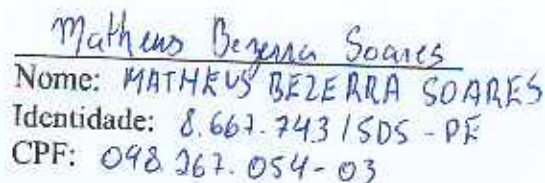 Matheus Bezerra Soares
Nome: MATHEUS BEZERRA SOARES
Identidade: 8.667.743 / SDS - PE
CPF: 098.267.054-03